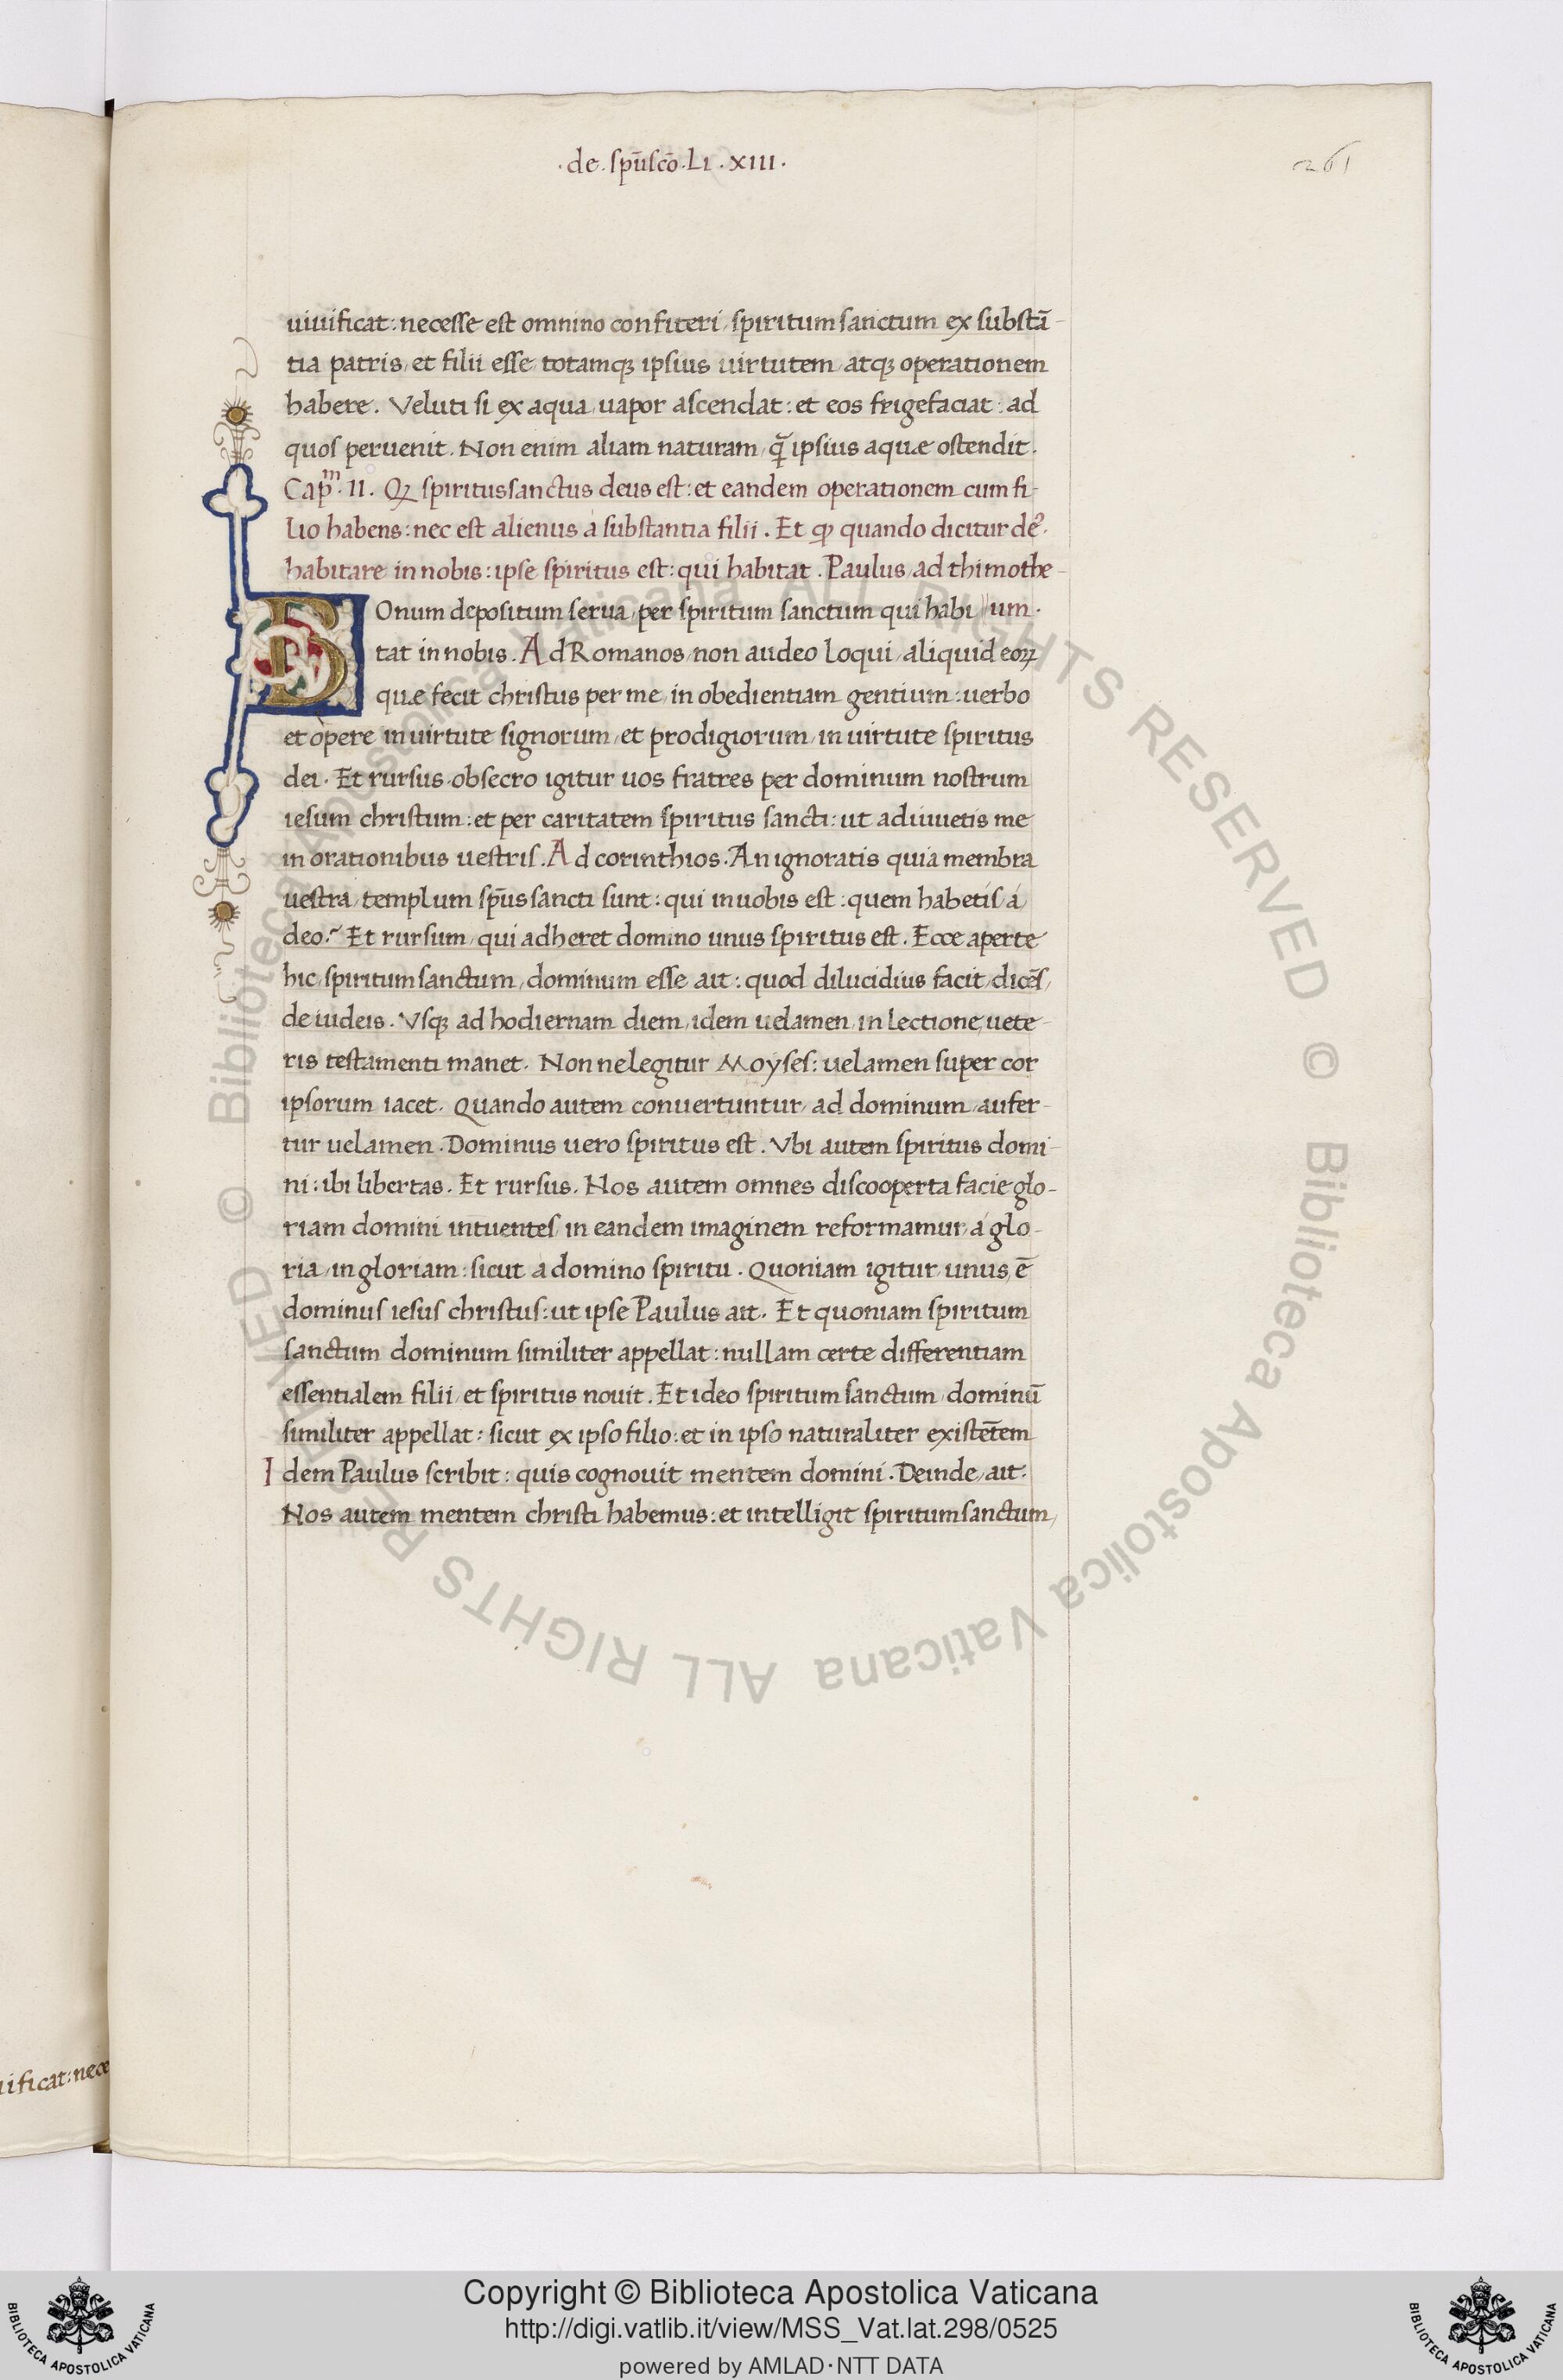 ·de·spūscō·LI·XIII·
261
uiuificat: necesse est omnino confiteri, spiritum sanctum ex substā-
tia patris, et filii esse, totamqꝫ ipsius uirtutem, atqꝫ operationem
habere. Veluti si ex aqua, uapor ascendat: et eos frigefaciat: ad
quos peruenit. Non enim aliam naturam, ꝙ̄ ipsius aquæ ostendit.
Cap.ᵐ II. Qꝫ spiritussanctus deus est: et eandem operationem cum fi-
lio habens: nec est alienus á substantia filii. Et ꝙ quando dicitur deꝰ·
habitare in nobis: ipse spiritus est: qui habitat. Paulus, ad thimothe-
BOnum depositum serua, per spiritum sanctum qui habi um·
tat in nobis. Ad Romanos, non audeo loqui, aliquid eoꝝ
quæ fecit christus per me, in obedientiam gentium: uerbo
et opere in uirtute signorum, et prodigiorum, in uirtute spiritus
dei· Et rursus·obsecro igitur uos fratres per dominum nostrum
iesum christum: et per caritatem spiritus sancti: ut adiuuetis me
in orationibus uestris. Ad corinthios. An ignoratis quia membra
uestra, templum sp̄us sancti sunt: qui in uobis est: quem habetis, á
deo.~ Et rursum, qui adheret domino unus spiritus est. Ecce aperte
hic, spiritum sanctum, dominum esse ait: quod dilucidius facit, dicēs,
de iudeis. Vsqꝫ ad hodiernam diem, idem uelamen, in lectione, uete-
ris testamenti manet. Non ne legitur Moyses: uelamen super cor
ipsorum iacet. Quando autem conuertuntur, ad dominum, aufer-
tur uelamen. Dominus uero spiritus est. Vbi autem spiritus domi-
ni: ibi libertas. Et rursus. Nos autem omnes discooperta facie glo-
riam domini intuentes, in eandem imaginem reformamur, á glo-
ria, in gloriam: sicut a domino spiritu. Quoniam igitur, unus, ē
dominus iesus christus: ut ipse Paulus ait. Et quoniam spiritum
sanctum dominum similiter appellat: nullam certe differentiam
essentialem filii, et spiritus nouit. Et ideo spiritum sanctum, dominū
similiter appellat: sicut ex ipso filio: et in ipso naturaliter existētem
Idem Paulus scribit: quis cognouit mentem domini. Deinde, ait.
Nos autem mentem christi habemus: et intelligit spiritum sanctum,
uificat: nece
© Biblioteca Apostolica Vaticana ALL RIGHTS RESERVED © Biblioteca Apostolica Vaticana ALL RIGHTS RESERVED
Copyright © Biblioteca Apostolica Vaticana
http://digi.vatlib.it/view/MSS_Vat.lat.298/0525
powered by AMLAD·NTT DATA
BIBLIOTECA APOSTOLICA VATICANA
BIBLIOTECA APOSTOLICA VATICANA